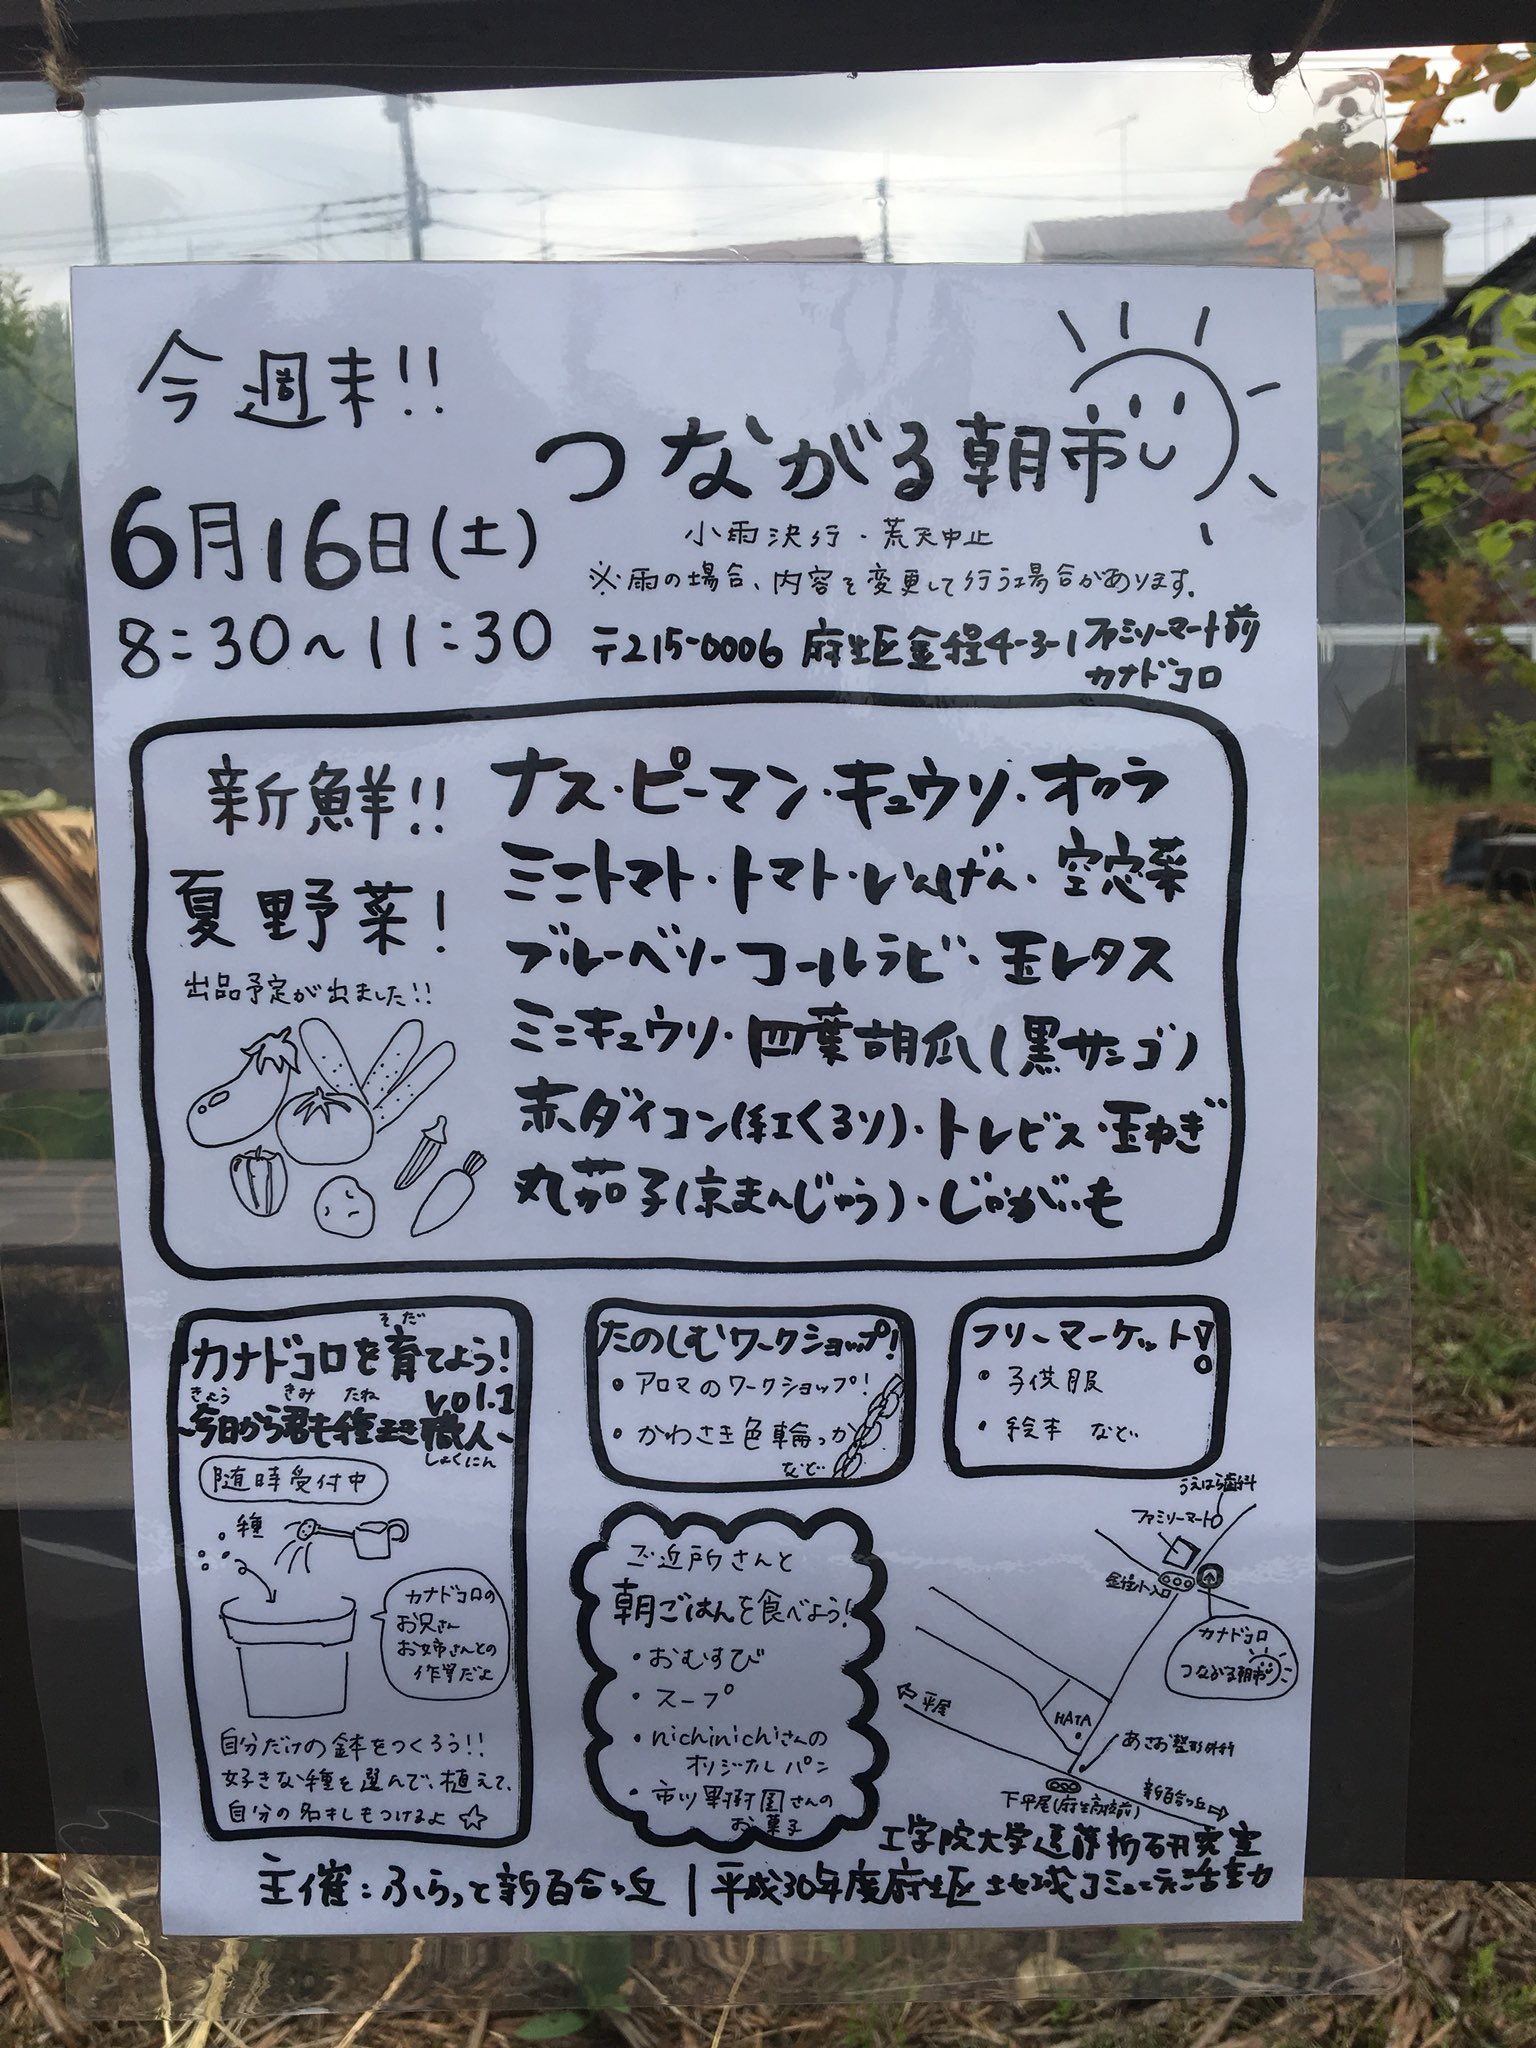 今週末!!
つながる朝市
6月16日(土)
8:30〜11:30
小雨決行・荒天中止
※雨の場合、内容を変更して行う場合があります。
〒215-0006 麻生区金程4-3-1 ファミリーマート前
カナドコロ
新鮮!!
夏野菜!
出品予定が出ました!!
ナス・ピーマン・キュウリ・オクラ
ミニトマト・トマト・いんげん・空芯菜
ブルーベリー コールラビ・玉レタス
ミニキュウリ・四葉胡瓜(黒サンゴ)
赤ダイコン(紅くるり)・トレビス・玉ねぎ
丸茄子(京まんじゅう)・じゃがいも
そだ
カナドコロを育てよう!
vol.1
きょう きみ たね
〜今日から君も種まき職人〜
しょくにん
随時受付中
種
カナドコロの
お兄さん
お姉さんとの
作業だよ
自分だけの鉢をつくろう!!
好きな種を選んで、植えて、
自分の名まえもつけるよ☆
たのしむワークショップ!
・アロマのワークショップ!
・かわさき色輪っか
など
フリーマーケット!
・子供服
・絵本 など
ご近所さんと
朝ごはんを食べよう!
・おむすび
・スープ
・nichinichiさんの
オリジナルパン
・市川果樹園さんの
お菓子
うえはら歯科
ファミリーマート
金程小入口
カナドコロ
つながる朝市
平尾
HATA
あさお整形外科
下平尾(麻生高校前)
新百合ヶ丘
工学院大学遠藤新研究室
主催:ふらっと新百合ヶ丘|平成30年度麻生区地域コミュニティ活動